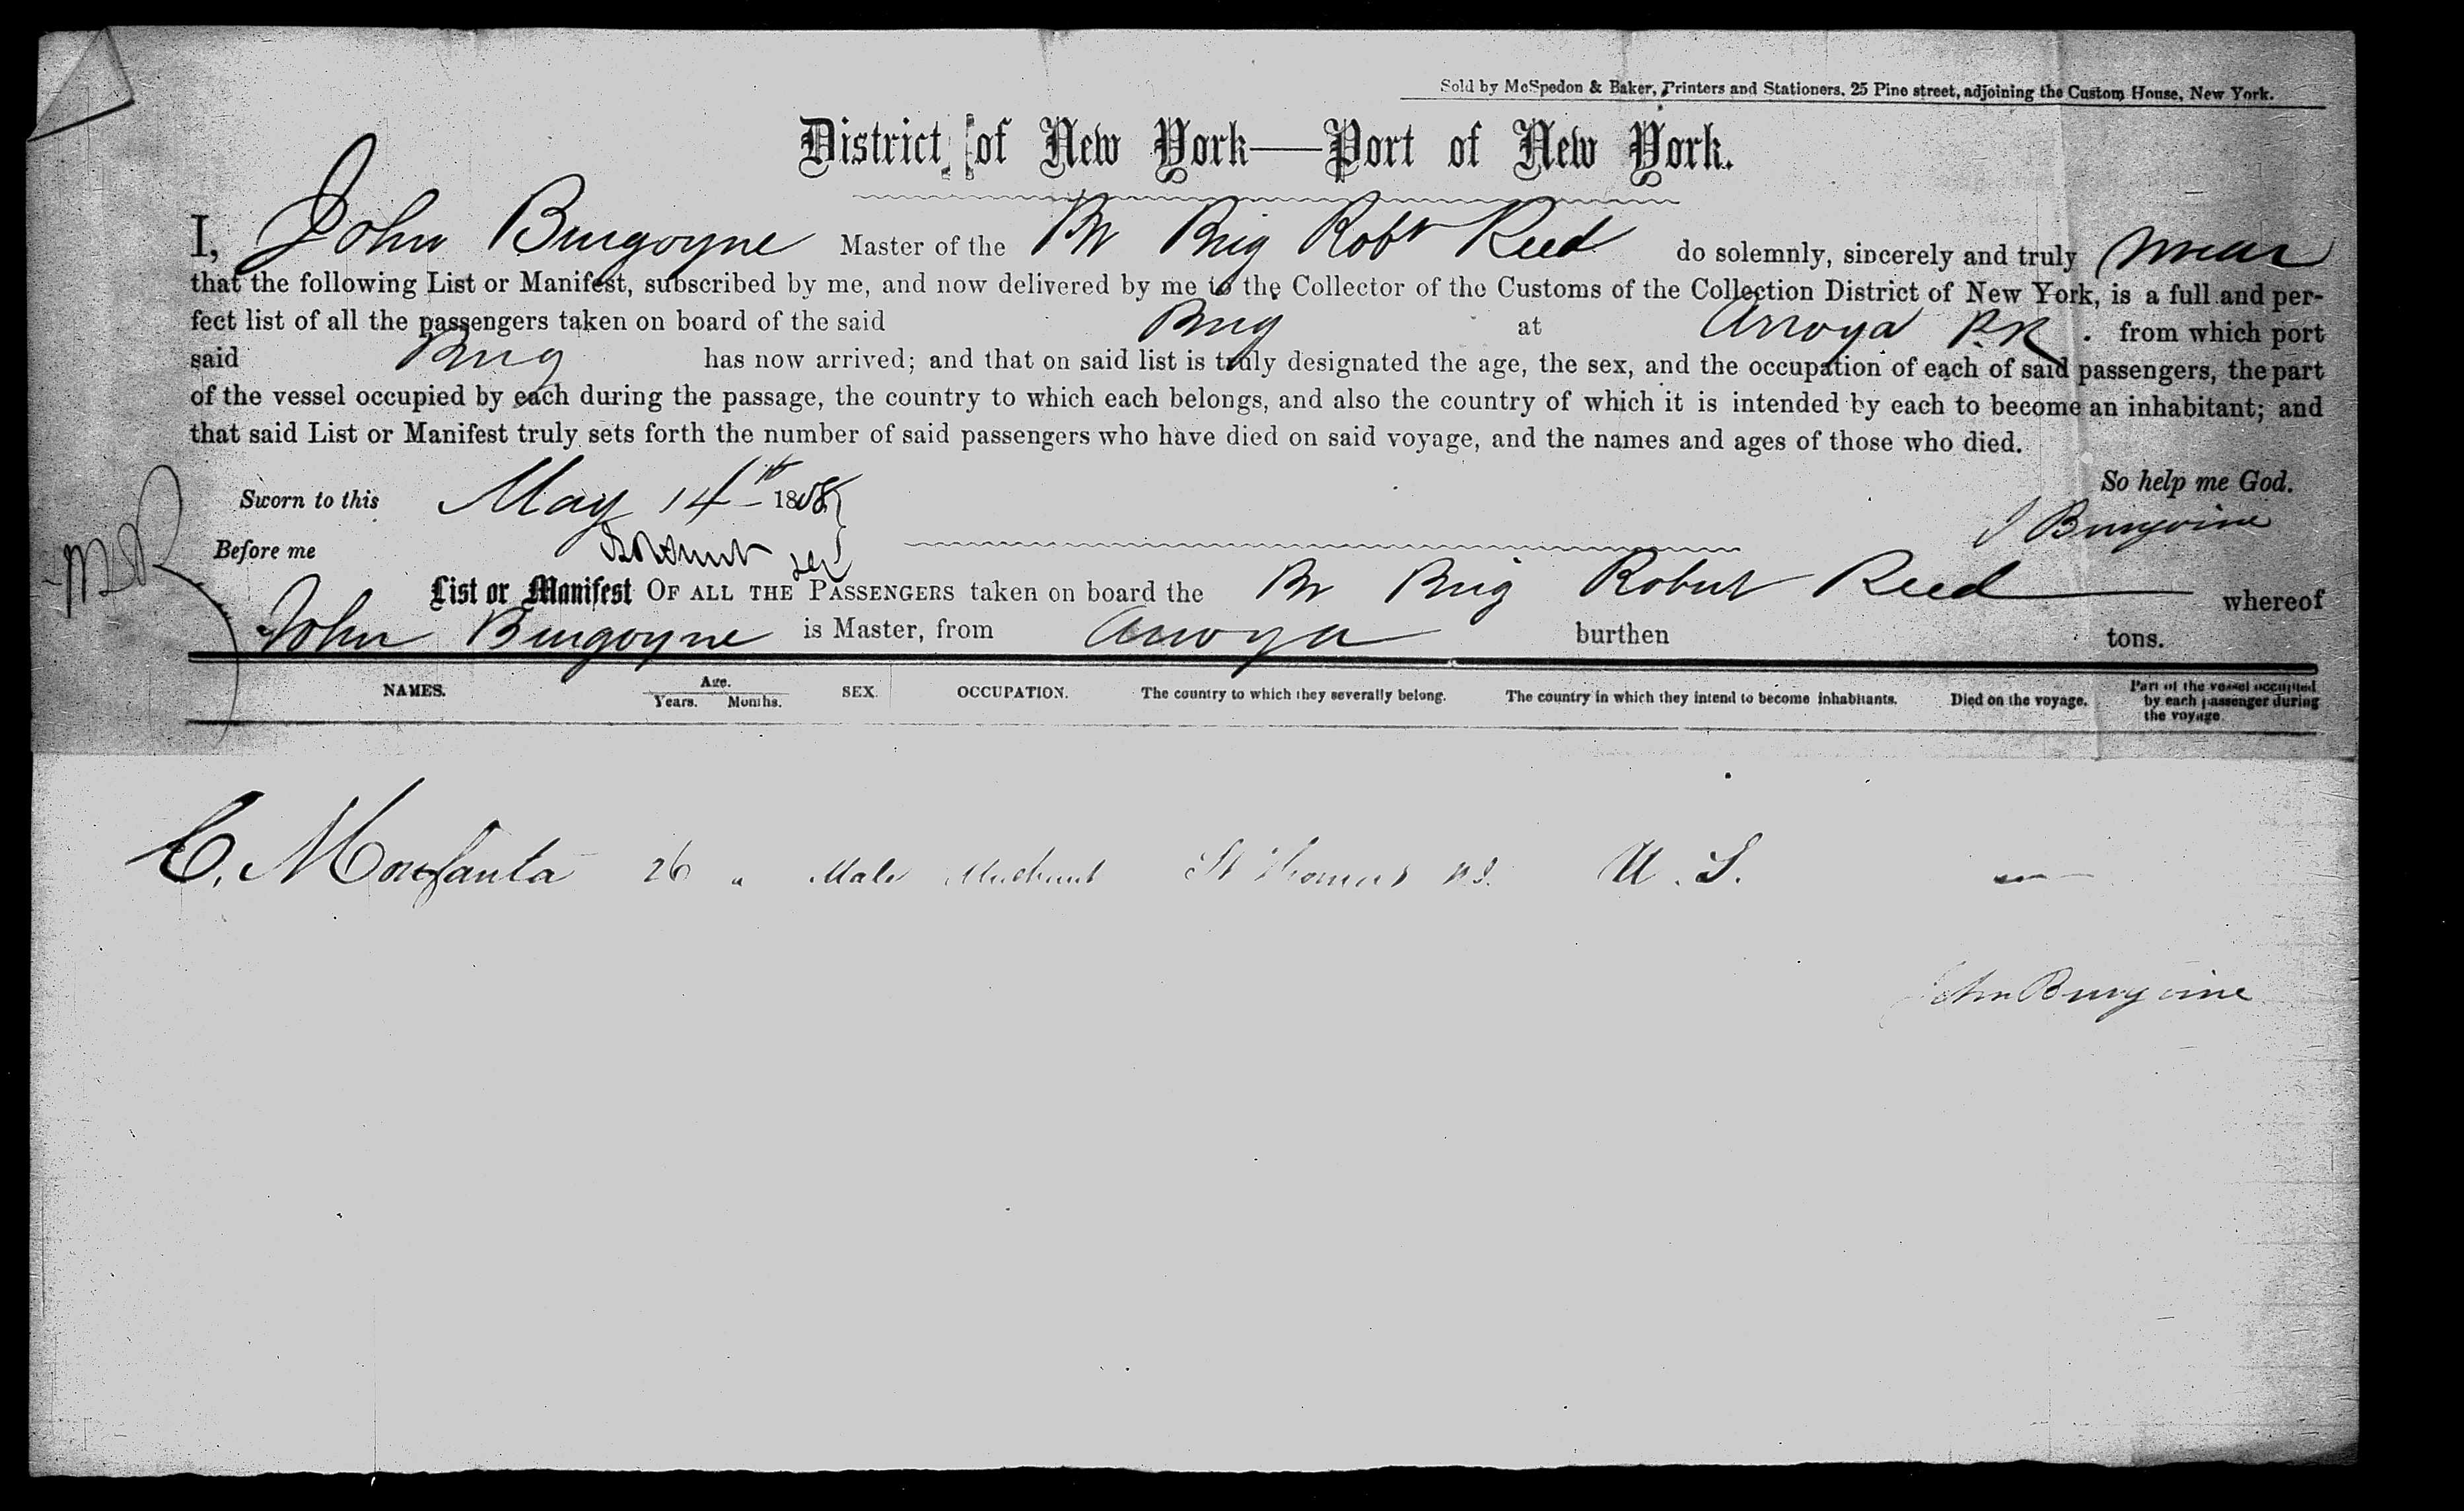 Sold by McSpedon & Baker, Printers and Stationers. 25 Pine street, adjoining the Custom House, New York.
District of New York—Port of New York.
I, John Burgoyne Master of the Br Brig Robt Reed do solemnly, sincerely and truly swear
that the following List or Manifest, subscribed by me, and now delivered by me to the Collector of the Customs of the Collection District of New York, is a full and per-
fect list of all the passengers taken on board of the said Brig at Arroya P.R. from which port
said Brig has now arrived; and that on said list is truly designated the age, the sex, and the occupation of each of said passengers, the part
of the vessel occupied by each during the passage, the country to which each belongs, and also the country of which it is intended by each to become an inhabitant; and
that said List or Manifest truly sets forth the number of said passengers who have died on said voyage, and the names and ages of those who died.
So help me God.
Sworn to this May 14th 1858
J Burgoine
Before me
List or Manifest OF ALL THE PASSENGERS taken on board the Br Brig Robert Reed whereof
John Burgoyne is Master, from Arroya burthen tons.
NAMES. Age. Years. Months. SEX. OCCUPATION. The country to which they severally belong. The country in which they intend to become inhabitants. Died on the voyage. Part of the vessel occupied by each passenger during the voyage.
C. Monsanta 26 " Male Merchant St Thomas U.S.
John Burgoine